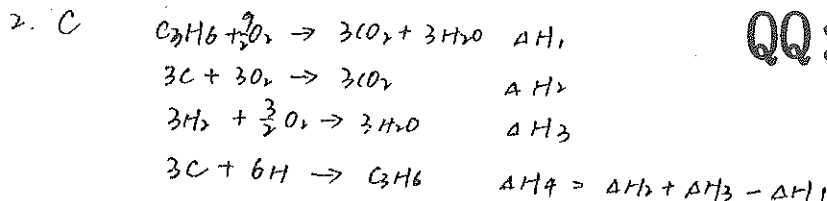 2. C C3H6 + 9/2 O2 → 3CO2 + 3H2O ΔH1
3C + 3O2 → 3CO2 ΔH2
3H2 + 3/2 O2 → 3H2O ΔH3
3C + 6H → C3H6 ΔH4 = ΔH2 + ΔH3 - ΔH1
QQ: